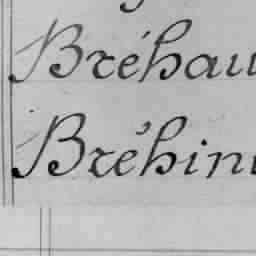 Bréhau
Bréhin